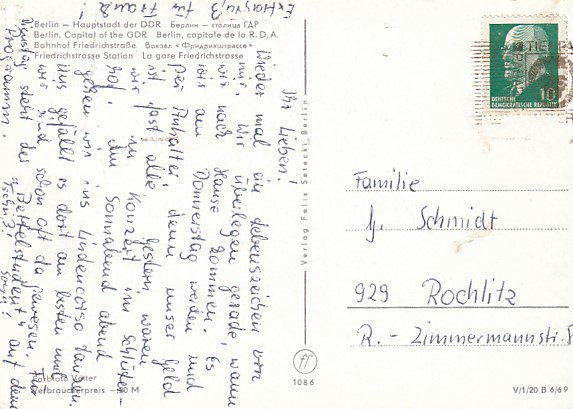 Extragruß für Frank!
Berlin – Hauptstadt der DDR Берлин – столица ГДР
Berlin, Capital of the GDR Berlin, capitale de la R.D.A.
Bahnhof Friedrichstraße Вокзал «Фридрихштрассе»
Friedrichstrasse Station La gare Friedrichstrasse
Ihr Lieben!
Wieder mal ein Lebenszeichen von
mir. Wir überlegen gerade, wann
wir nach Hause kommen. Es
wird am Donnerstag werden und
Der Anhalter, denn unser Geld
ist fast alle. Gestern waren
wir im Konzert im Schlüter-
hof. Am Sonnabend abend
gehen wir ins Lindencorso tanzen.
Uns gefällt es dort am besten und
wir sind schon oft da gewesen. Für
Dienstag steht der "Bettelstudent" auf dem
Programm.
Tschüß!
Farbfoto Vetter
Verbraucherpreis –,20 M
Verlag Felix Setecki, Berlin
1086
10
DEUTSCHE
DEMOKRATISCHE REPUBLIK
Familie
Schmidt
929 Rochlitz
R.- Zimmermannstr. 8
V/1/20 B 6/69